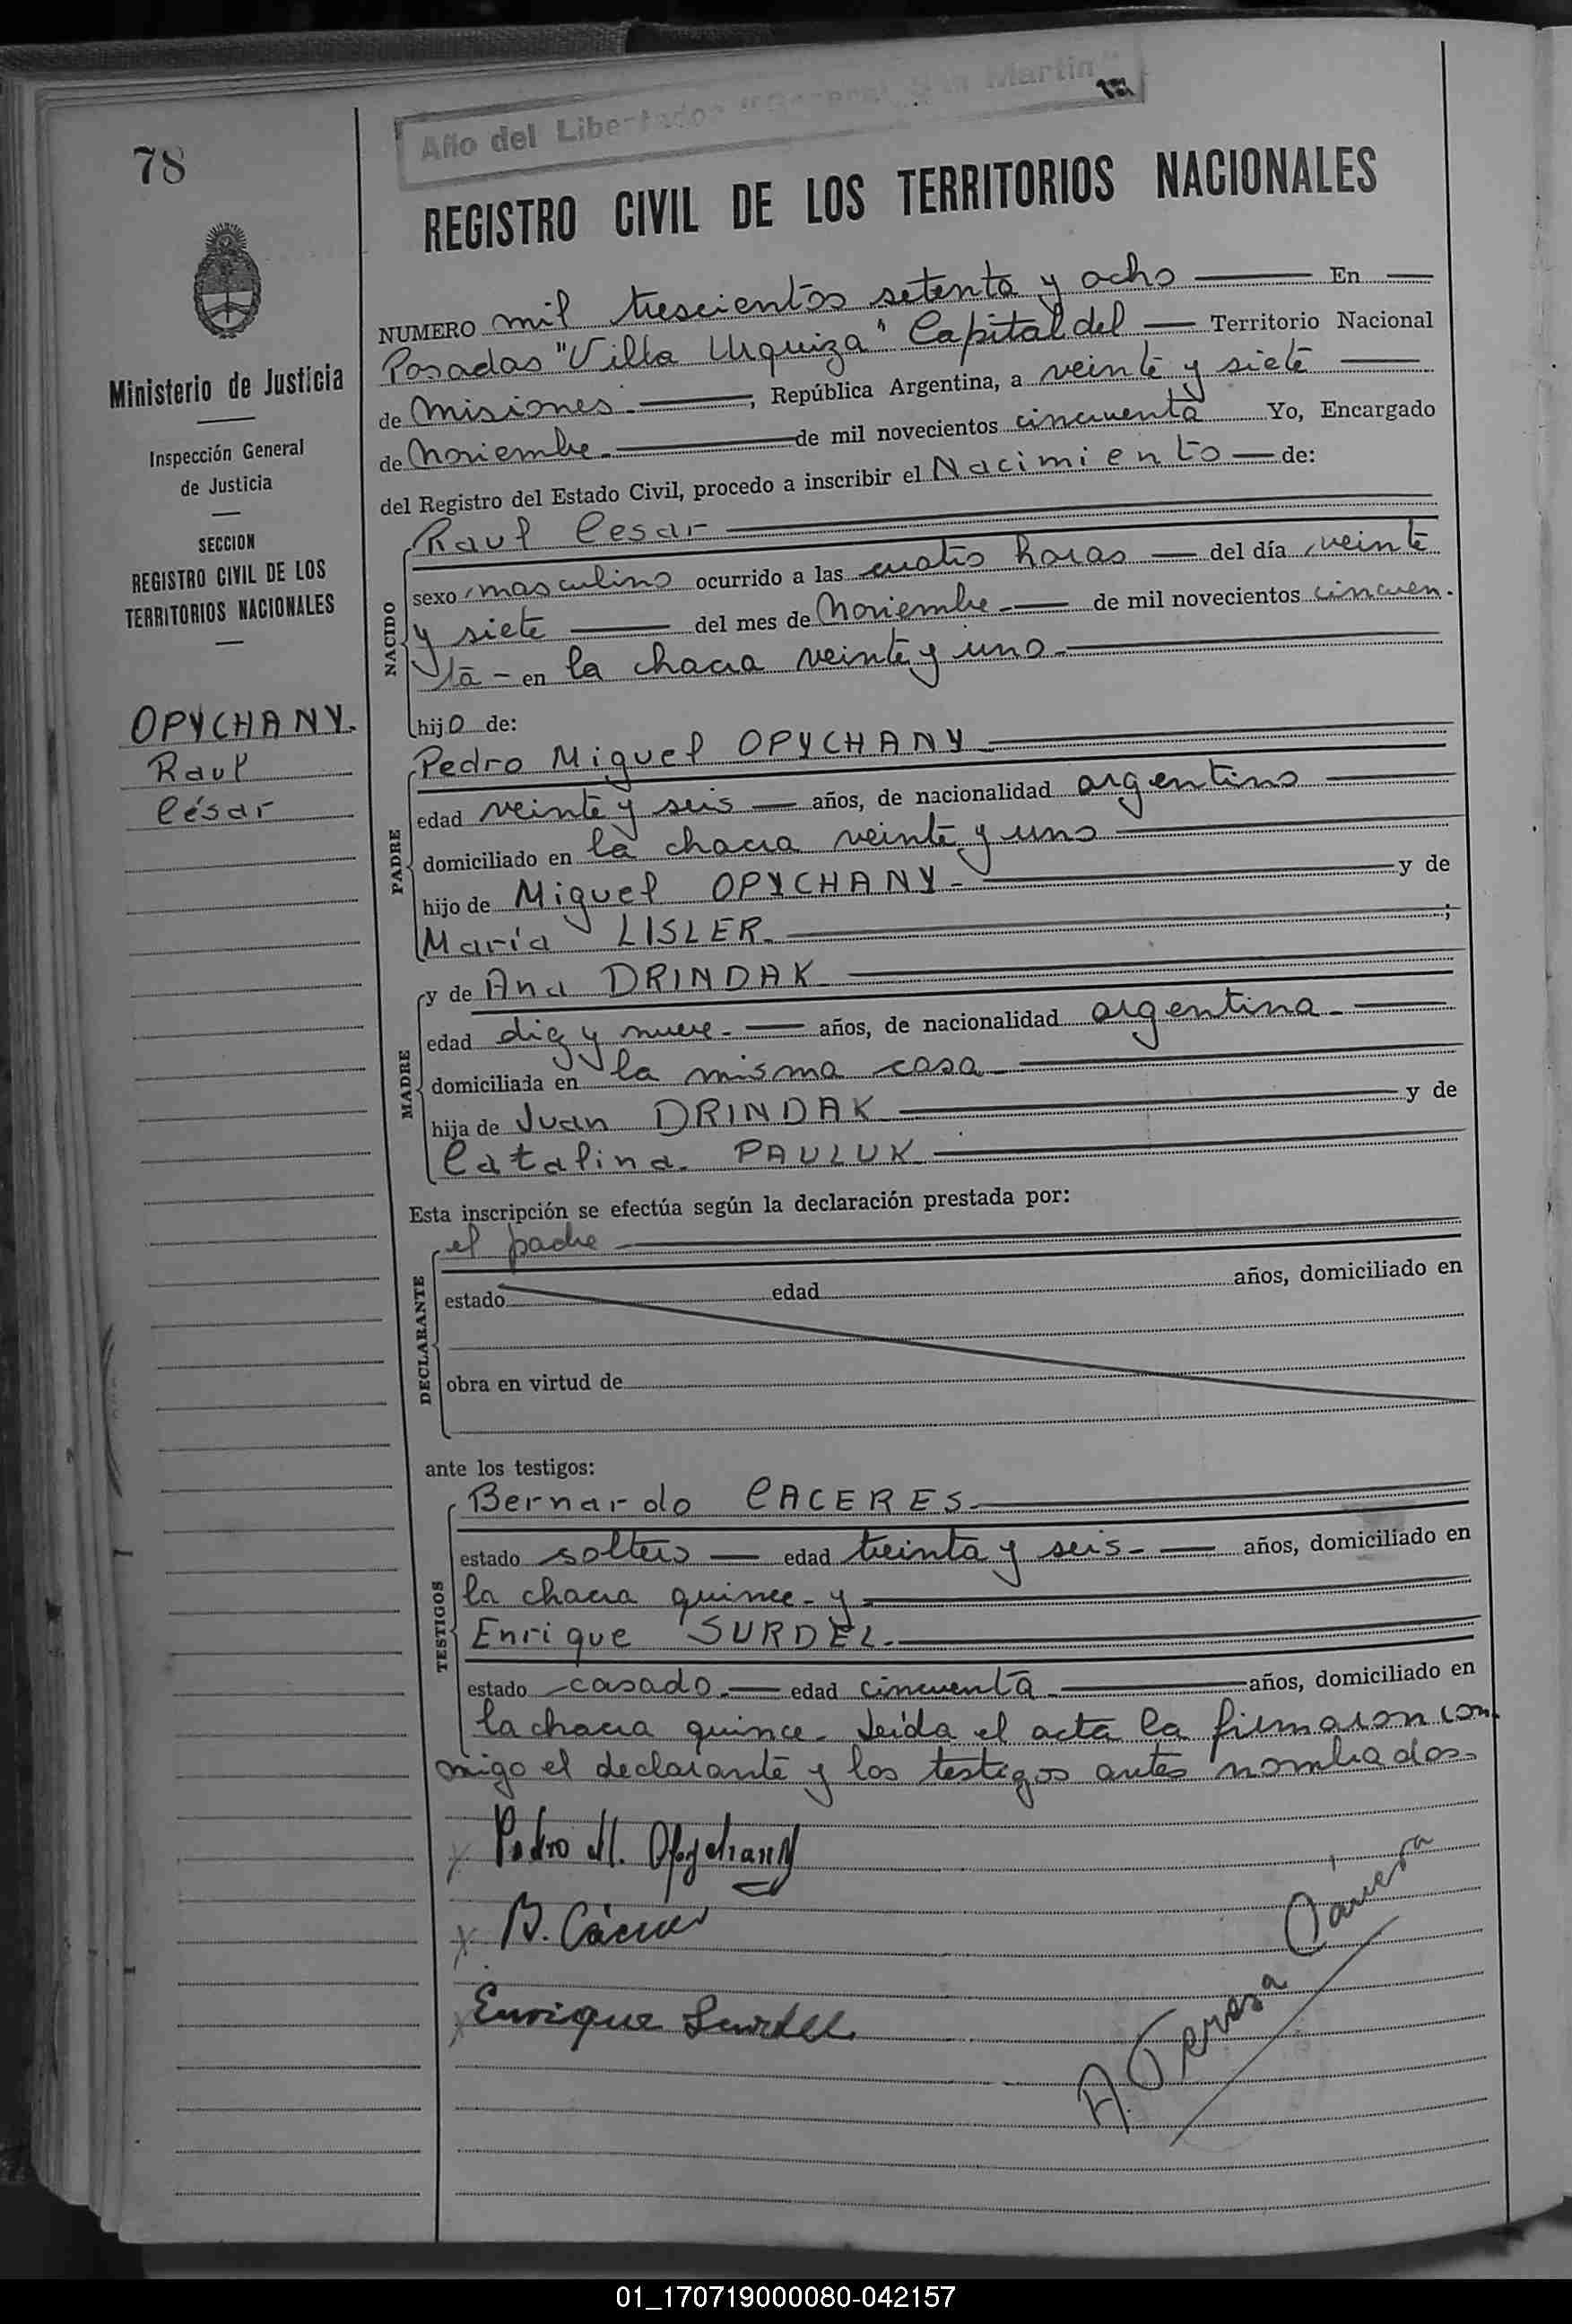 78
Año del Libertador "General San Martin"
REGISTRO CIVIL DE LOS TERRITORIOS NACIONALES
Ministerio de Justicia
Inspección General
de Justicia
SECCION
REGISTRO CIVIL DE LOS
TERRITORIOS NACIONALES
OPYCHANY.
Raul
César
NUMERO mil trescientos setenta y ocho En
Posadas "Villa Urquiza" Capital del Territorio Nacional
de Misiones. , República Argentina, a veinte y siete
de Noviembre. de mil novecientos cincuenta Yo, Encargado
del Registro del Estado Civil, procedo a inscribir el Nacimiento de:
NACIDO
Raul Cesar
sexo masculino ocurrido a las cuatro horas del día veinte
y siete del mes de Noviembre. de mil novecientos cincuen.
ta - en la chacra veinte y uno.
hijo de:
PADRE
Pedro Miguel OPYCHANY
edad veinte y seis años, de nacionalidad argentino
domiciliado en la chacra veinte y uno
hijo de Miguel OPYCHANY. y de
María LISLER. ;
MADRE
y de Ana DRINDAK
edad diez y nueve. años, de nacionalidad argentina.
domiciliada en la misma casa
hija de Juan DRINDAK y de
Catalina. PAULUK
Esta inscripción se efectúa según la declaración prestada por:
DECLARANTE
el padre
estado edad años, domiciliado en
obra en virtud de
ante los testigos:
TESTIGOS
Bernardo CACERES.
estado soltero edad treinta y seis. años, domiciliado en
la chacra quince. y
Enrique SURDEL.
estado casado. edad cincuenta años, domiciliado en
la chacra quince. Leída el acta la firmaron con
migo el declarante y los testigos antes nombrados.
Pedro M. Opychany
B. Cáceres
Enrique Surdel.
A. Teresa
01_170719000080-042157